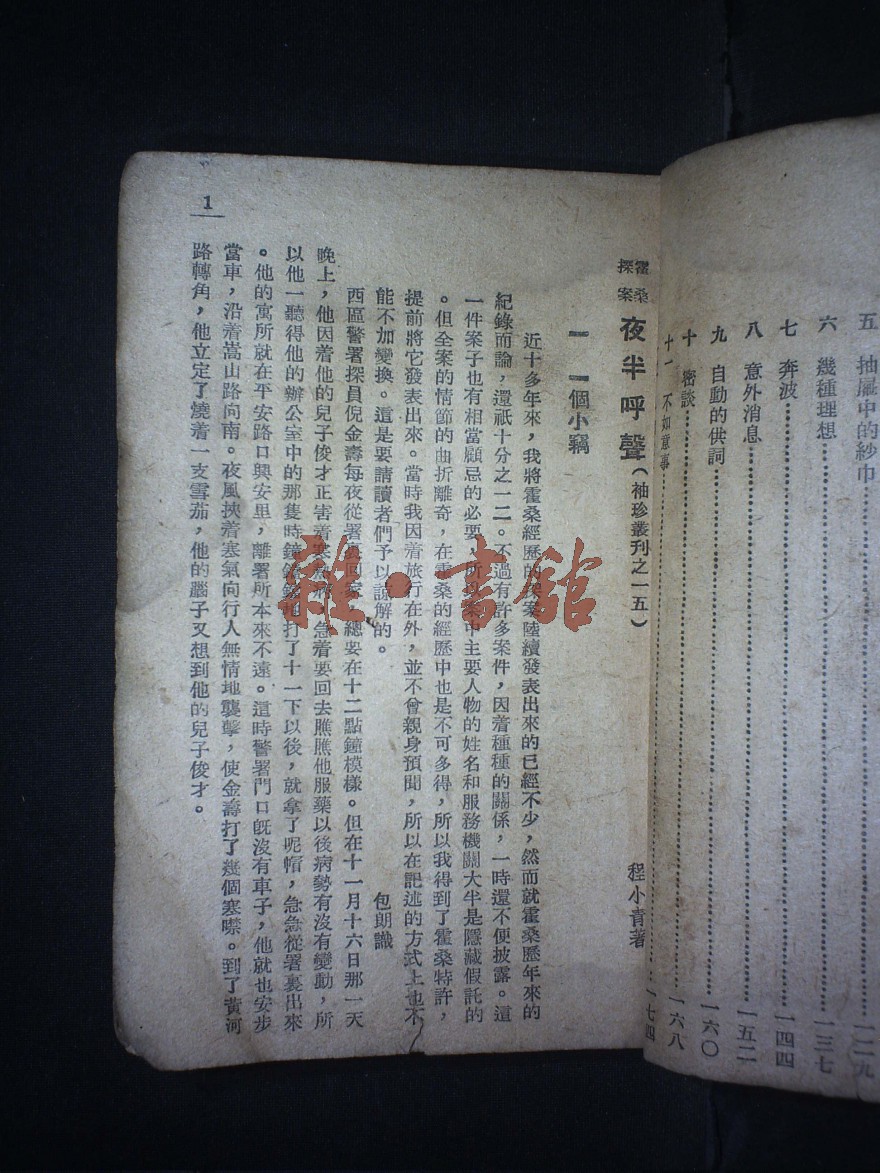 五 抽屜中的紗巾……一二九
六 幾種理想……一三七
七 奔波……一四四
八 意外消息……一五二
九 自動的供詞……一六〇
十 密談……一六八
十一 不如意事……一七四
霍桑探案 夜半呼聲(袖珍叢刊之一五) 程小青著
一 一個小竊
近十多年來,我將霍桑經歷的探案陸續發表出來的已經不少,然而就霍桑歷年來的
紀錄而論,還祇十分之一二。不過有許多案件,因着種種的關係,一時還不便披露。這
一件案子也有相當顧忌的必要,所以案中主要人物的姓名和服務機關大半是隱藏假託的
。但全案的情節的曲折離奇,在霍桑的經歷中也是不可多得,所以我得到了霍桑特許,
提前將它發表出來。當時我因着旅行在外,並不曾親身預聞,所以在記述的方式上也不
能不加變換。這是要請讀者們予以諒解的。 包朗識
西區警署探員倪金壽每夜從署裏回家,總要在十二點鐘模樣。但在十一月十六日那一天
晚上,他因着他的兒子俊才正害着寒熱病,急着要回去瞧瞧他服藥以後病勢有沒有變動,所
以他一聽得他的辦公室中的那隻時鐘鏜鏜地打了十一下以後,就拿了呢帽,急急從署裏出來
。他的寓所就在平安路口興安里,離署所本來不遠。這時警署門口旣沒有車子,他就也安步
當車,沿着嵩山路向南。夜風挾着寒氣向行人無情地襲擊,使金壽打了幾個寒噤。到了黃河
路轉角,他立定了燒着一支雪茄,他的腦子又想到他的兒子俊才。
1
雜·書館